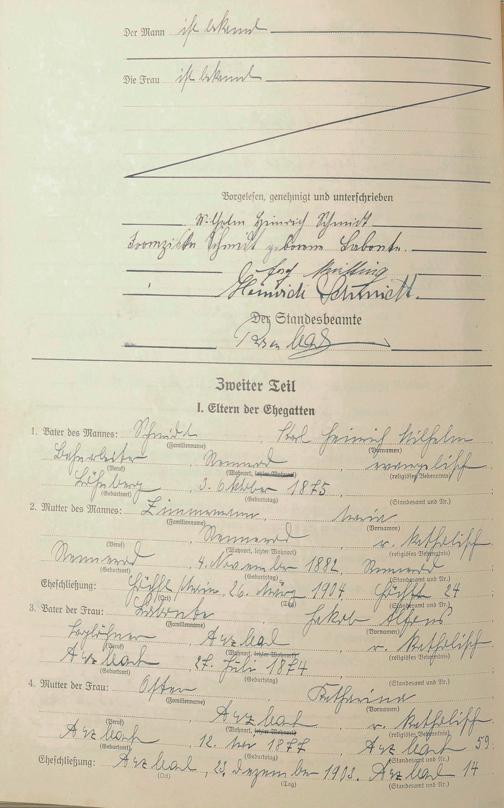 Der Mann ist bekannt
Die Frau ist bekannt
Vorgelesen, genehmigt und unterschrieben
Wilhelm Heinrich Schmidt
Schmidt geborene Labonte.
Josef
Heinrich Schmidt.
Der Standesbeamte
Zweiter Teil
I. Eltern der Ehegatten
1. Vater des Mannes: Schmidt Karl Heinrich Wilhelm
(Familienname) (Vornamen)
Rennerod, evangelisch
(Beruf) (Wohnort, letzter Wohnort) (religiöses Bekenntnis)
Löhnberg 3. Oktober 1875
(Geburtsort) (Geburtstag) (Standesamt und Nr.)
2. Mutter des Mannes: Zimmermann, Maria
(Familienname) (Vornamen)
Rennerod, r. katholisch
(Beruf) (Wohnort, letzter Wohnort) (religiöses Bekenntnis)
Rennerod, 4. November 1882, Rennerod
(Geburtsort) (Geburtstag) (Standesamt und Nr.)
Eheschließung: Höchst/Main, 26. März 1904 Höchst 24
(Ort) (Tag) (Standesamt und Nr.)
3. Vater der Frau: Labonte Jakob Alfons
(Familienname) (Vornamen)
Taglöhner, Arzbach, r. katholisch
(Beruf) (Wohnort, letzter Wohnort) (religiöses Bekenntnis)
Arzbach 27. Juli 1874
(Geburtsort) (Geburtstag) (Standesamt und Nr.)
4. Mutter der Frau: Oster Katharina
(Familienname) (Vornamen)
Arzbach, r. katholisch
(Beruf) (Wohnort, letzter Wohnort) (religiöses Bekenntnis)
Arzbach, 12. 1877, Arzbach 59
(Geburtsort) (Geburtstag) (Standesamt und Nr.)
Eheschließung: Arzbach, Dezember 1903. Arzbach 14
(Ort) (Tag) (Standesamt und Nr.)